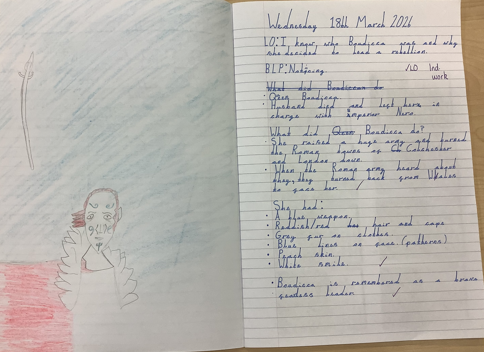 Wednesday 18th March 2026
LO: I know who Boudicca was and why
she decided to lead a rebellion.
BLP: Noticing.
/LO Ind
work
What did Boudiccan do
Queen Boudicca
Husband died and left her in
charge with Emperor Nero.
What did Queen Boudicca do?
She raised a huge army and burned
the Roman towns of Co Colchester
and London down.
When the Roman army heard about
they, they turned back from Wales
to face her.
She had:
A blue weapon.
Reddish/red hair and cape
Grey fur as clothes.
Blue lines as face. (patterns)
Peach skin.
White smile.
Boudicca is remembered as a brave
leader